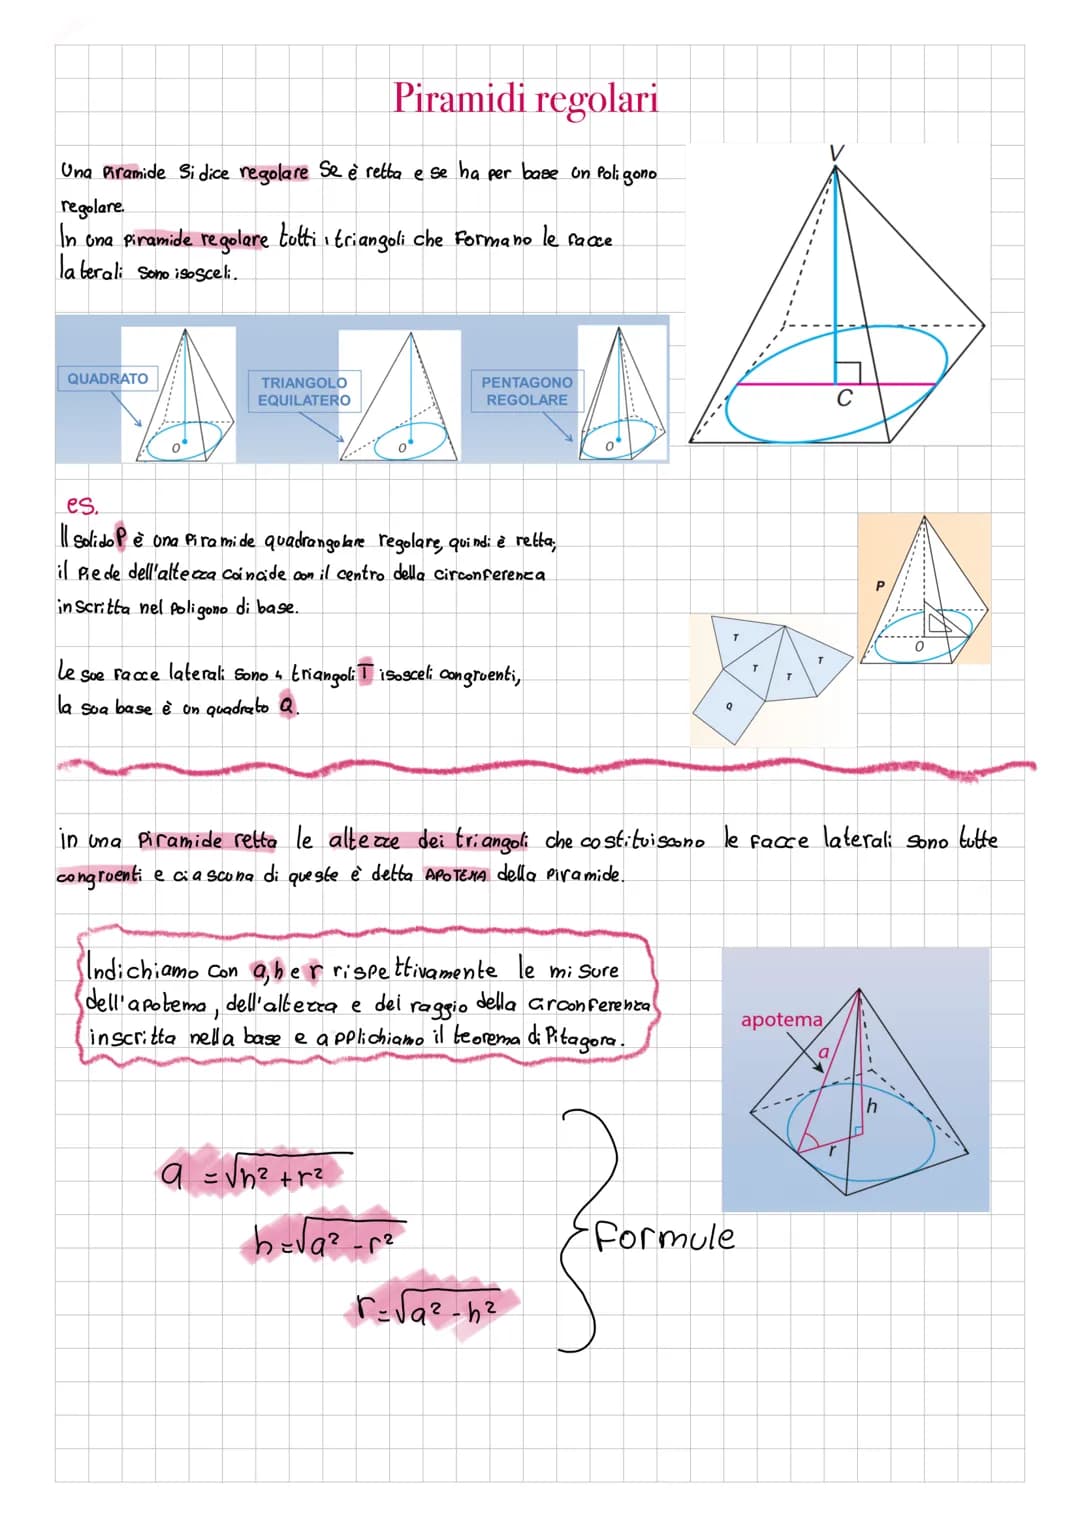 Piramidi regolari
Una Piramide Si dice regolare Se è retta e se ha per base un Poligono
regolare.
In una Piramide regolare tutti i triangoli che Formano le facce
laterali Sono isosceli.
V
C
QUADRATO
O
TRIANGOLO
EQUILATERO
O
PENTAGONO
REGOLARE
O
es.
Il solido P è una Piramide quadrangolare regolare, quindi è retta;
il Piede dell'altezza coincide con il centro della circonferenza
inscritta nel Poligono di base.
P
O
Le sue facce laterali sono 4 triangoli T isosceli congruenti,
la sua base è un quadrato Q.
T
T
T
T
Q
in una Piramide retta le altezze dei triangoli che costituiscono le facce laterali sono tutte
congruenti e ciascuna di queste è detta APOTEMA della Piramide.
Indichiamo con a, h e r rispettivamente le misure
dell'apotema, dell'altezza e del raggio della circonferenza
inscritta nella base e applichiamo il teorema di Pitagora.
apotema
a
h
r
a = √h² + r²
h = √a² - r²
r = √a² - h²
Formule